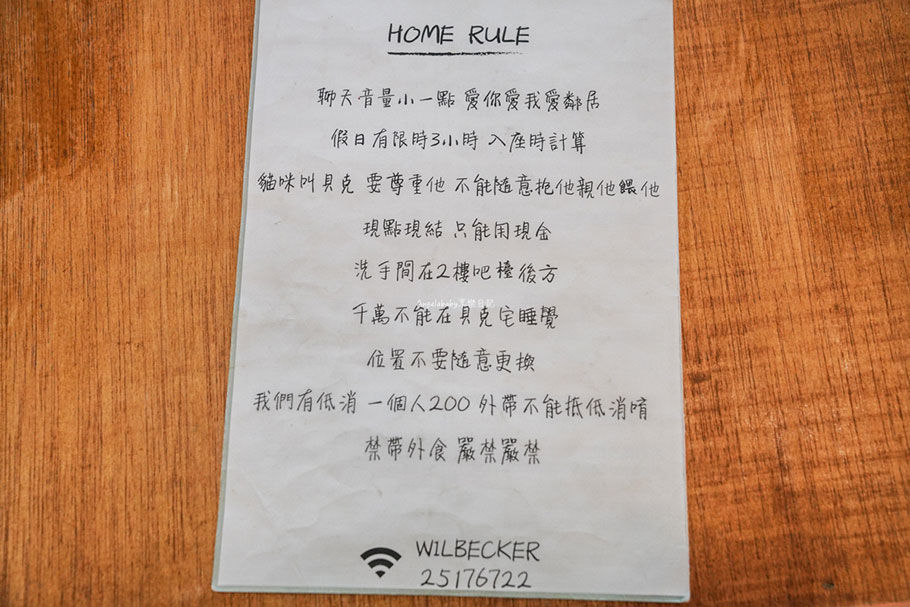 HOME RULE
聊天音量小一點 愛你愛我愛鄰居
假日有限時3小時 入座時計算
貓咪叫貝克 要尊重他 不能隨意抱他親他餵他
現點現結 只能用現金
洗手間在2樓吧檯後方
Angelababy享樂日記
千萬不能在貝克宅睡覺
位置不要隨意更換
我們有低消 一個人200 外帶不能抵低消唷
禁帶外食 嚴禁嚴禁
WILBECKER
25176722